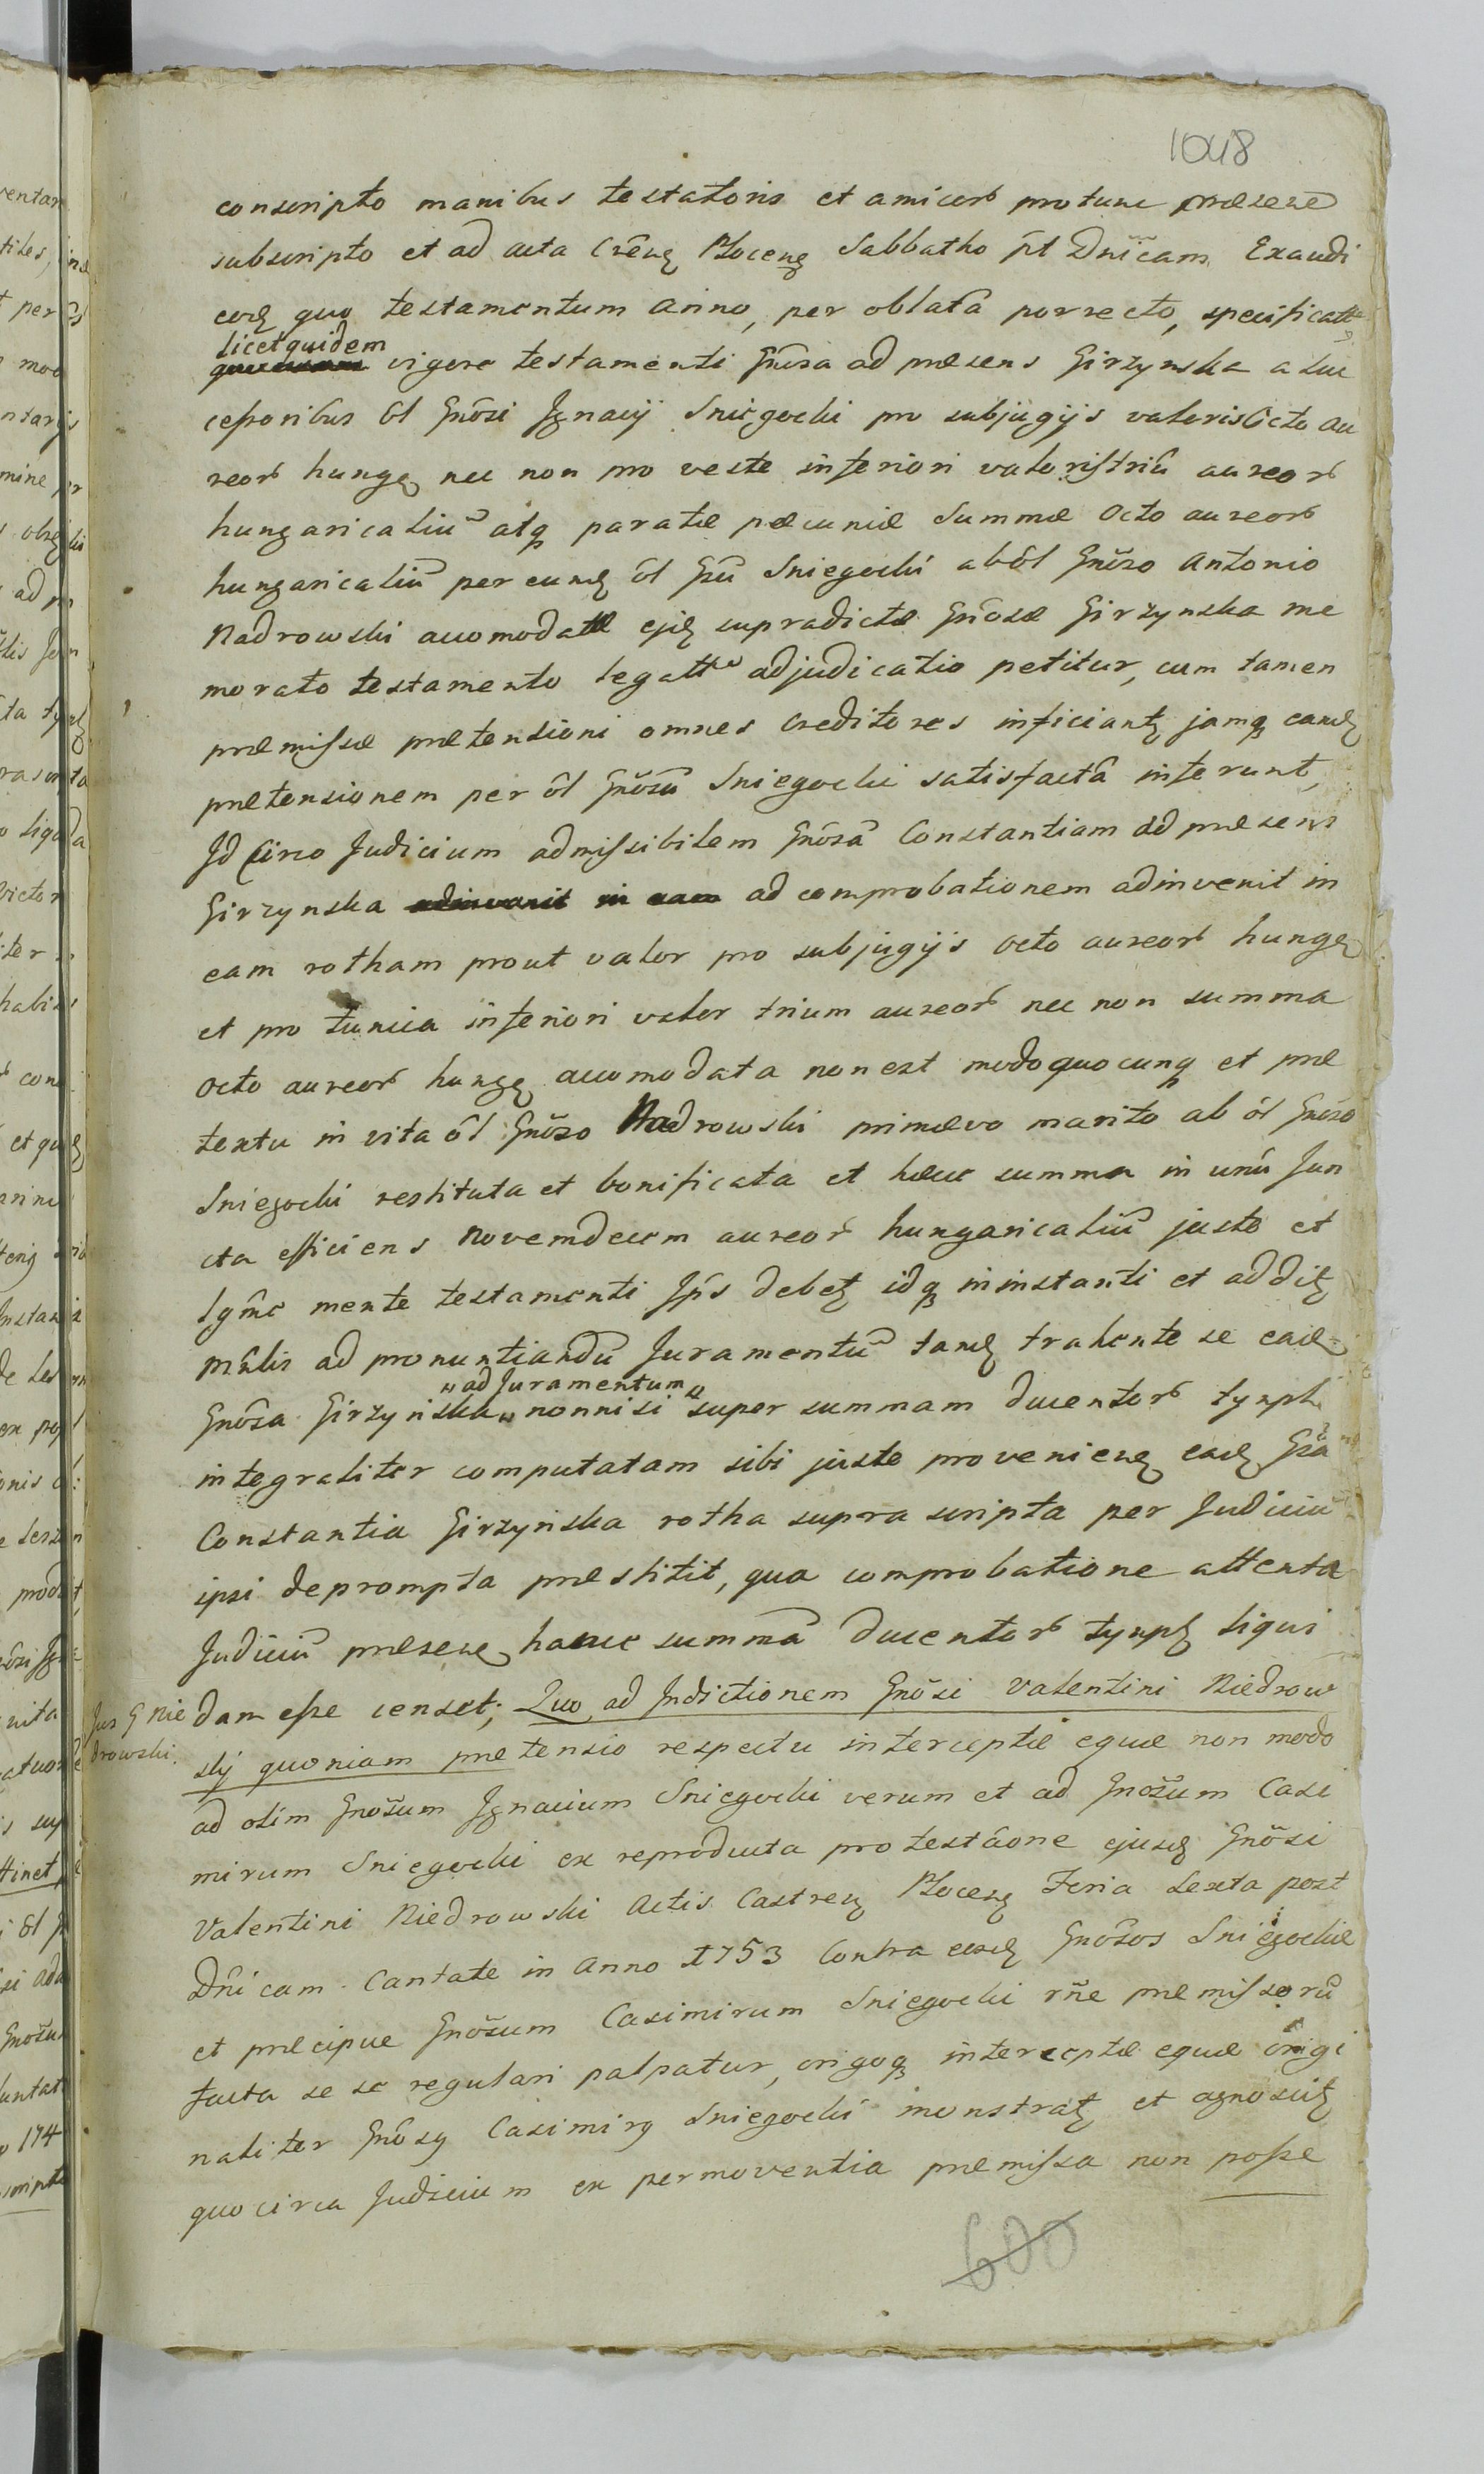 1048
conscripto manibus testatoris et amicorb protunc præsenẽ
subscripto et ad acta Crẽnꝫ Plocenꝫ Sabbatho pt Dnĩcam Exaudi
eodꝫ quo testamentum anno, per oblatã porrecto, specificatte
licet quidem
vigore testamenti Gnosa ad præsens Girzynska a suc
ceſsoribus ol Gnõsi Jgnacij Sniegocki pro subjugijs valoris Octo au
reorb hungꝫ nec non pro veste inferiori valoris triũ aureorb
hungaricaliũ atqꝫ paratæ pæcuniæ Summæ Octo aureorb
hungaricaliũ per eundꝫ ol Gsũ Sniegocki ab ol Gnõso Antonio
Nadrowski accomodatæ ejdꝫ supradictæ Gnosæ Girzynska me
morato testamento legattæ adjudicatio petitur, cum tamen
præmiſsæ prætensioni omnes Creditores inficiantꝫ jamqꝫ eandꝫ
prætensionem per ol Gnõsũ Sniegocki satisfactã inferunt,
Jd Circo Judicium admiſsibilem Gnõsã Constantiam ad præsens
Girzynska ad comprobationem adinvenit in
eam rotham prout valor pro subjugijs octo aureorb hungꝫ
et pro tunica inferiori valor trium aureorb nec non summa
Octo aureorb hungꝫ accomodata non est modo quocunqꝫ et præ
textu in vita ol Gnõso Nadrowski primævo marito ab ol Gnõso
Sniegocki restituta et bonificata et hæc summa in unũ Jun
cta efficiens Novemdecim aureorb hungaricaliũ juste et
lgmẽ mente testamenti Jps debetꝫ idqꝫ in instanti et additꝫ
mũlis ad pronuntiandũ Juramentũ tandꝫ trahente se eadꝫ
„ad Juramentum„
Gnõsa Girzynska „nonnisi super summam ducentorb tynph
integraliter computatam sibi juste provenienꝫ eadꝫ Gsa
Constantia Girzynska rotha supra scripta per Judiciũ
ipsi deprompta præstitit, qua comprobatione attenta
Judiciũ præsenꝫ hanc summã ducentorb tynpꝫ liqui
Jus G Nie
drowski.
dam eſse censet; Quo ad Jndictionem Gnõsi Valentini Niedrow
skj quoniam prætensio respectu interceptæ equæ non modo
ad olim Gnõsum Jgnacium Sniegocki verum et ad Gnõsum Casi
mirum Sniegocki ex reproducta protestãone ejusdꝫ Gnõsi
Valentini Niedrowski Actis Castrenꝫ Plocenꝫ Feria Sexta post
Dnĩcam Cantate in Anno 1753 Contra eosdꝫ Gnõsos Sniegockie
et præcipue Gnõsum Casimirum Sniegocki rñe præmiſsorũ
facta se se regulari palpatur, origoqꝫ interceptæ equæ origi
naliter Gnõsꝫ Casimirꝫ Sniegocki monstratꝫ et agnoscitꝫ
quocirca Judicium ex permoventia præmiſsa non poſse
600